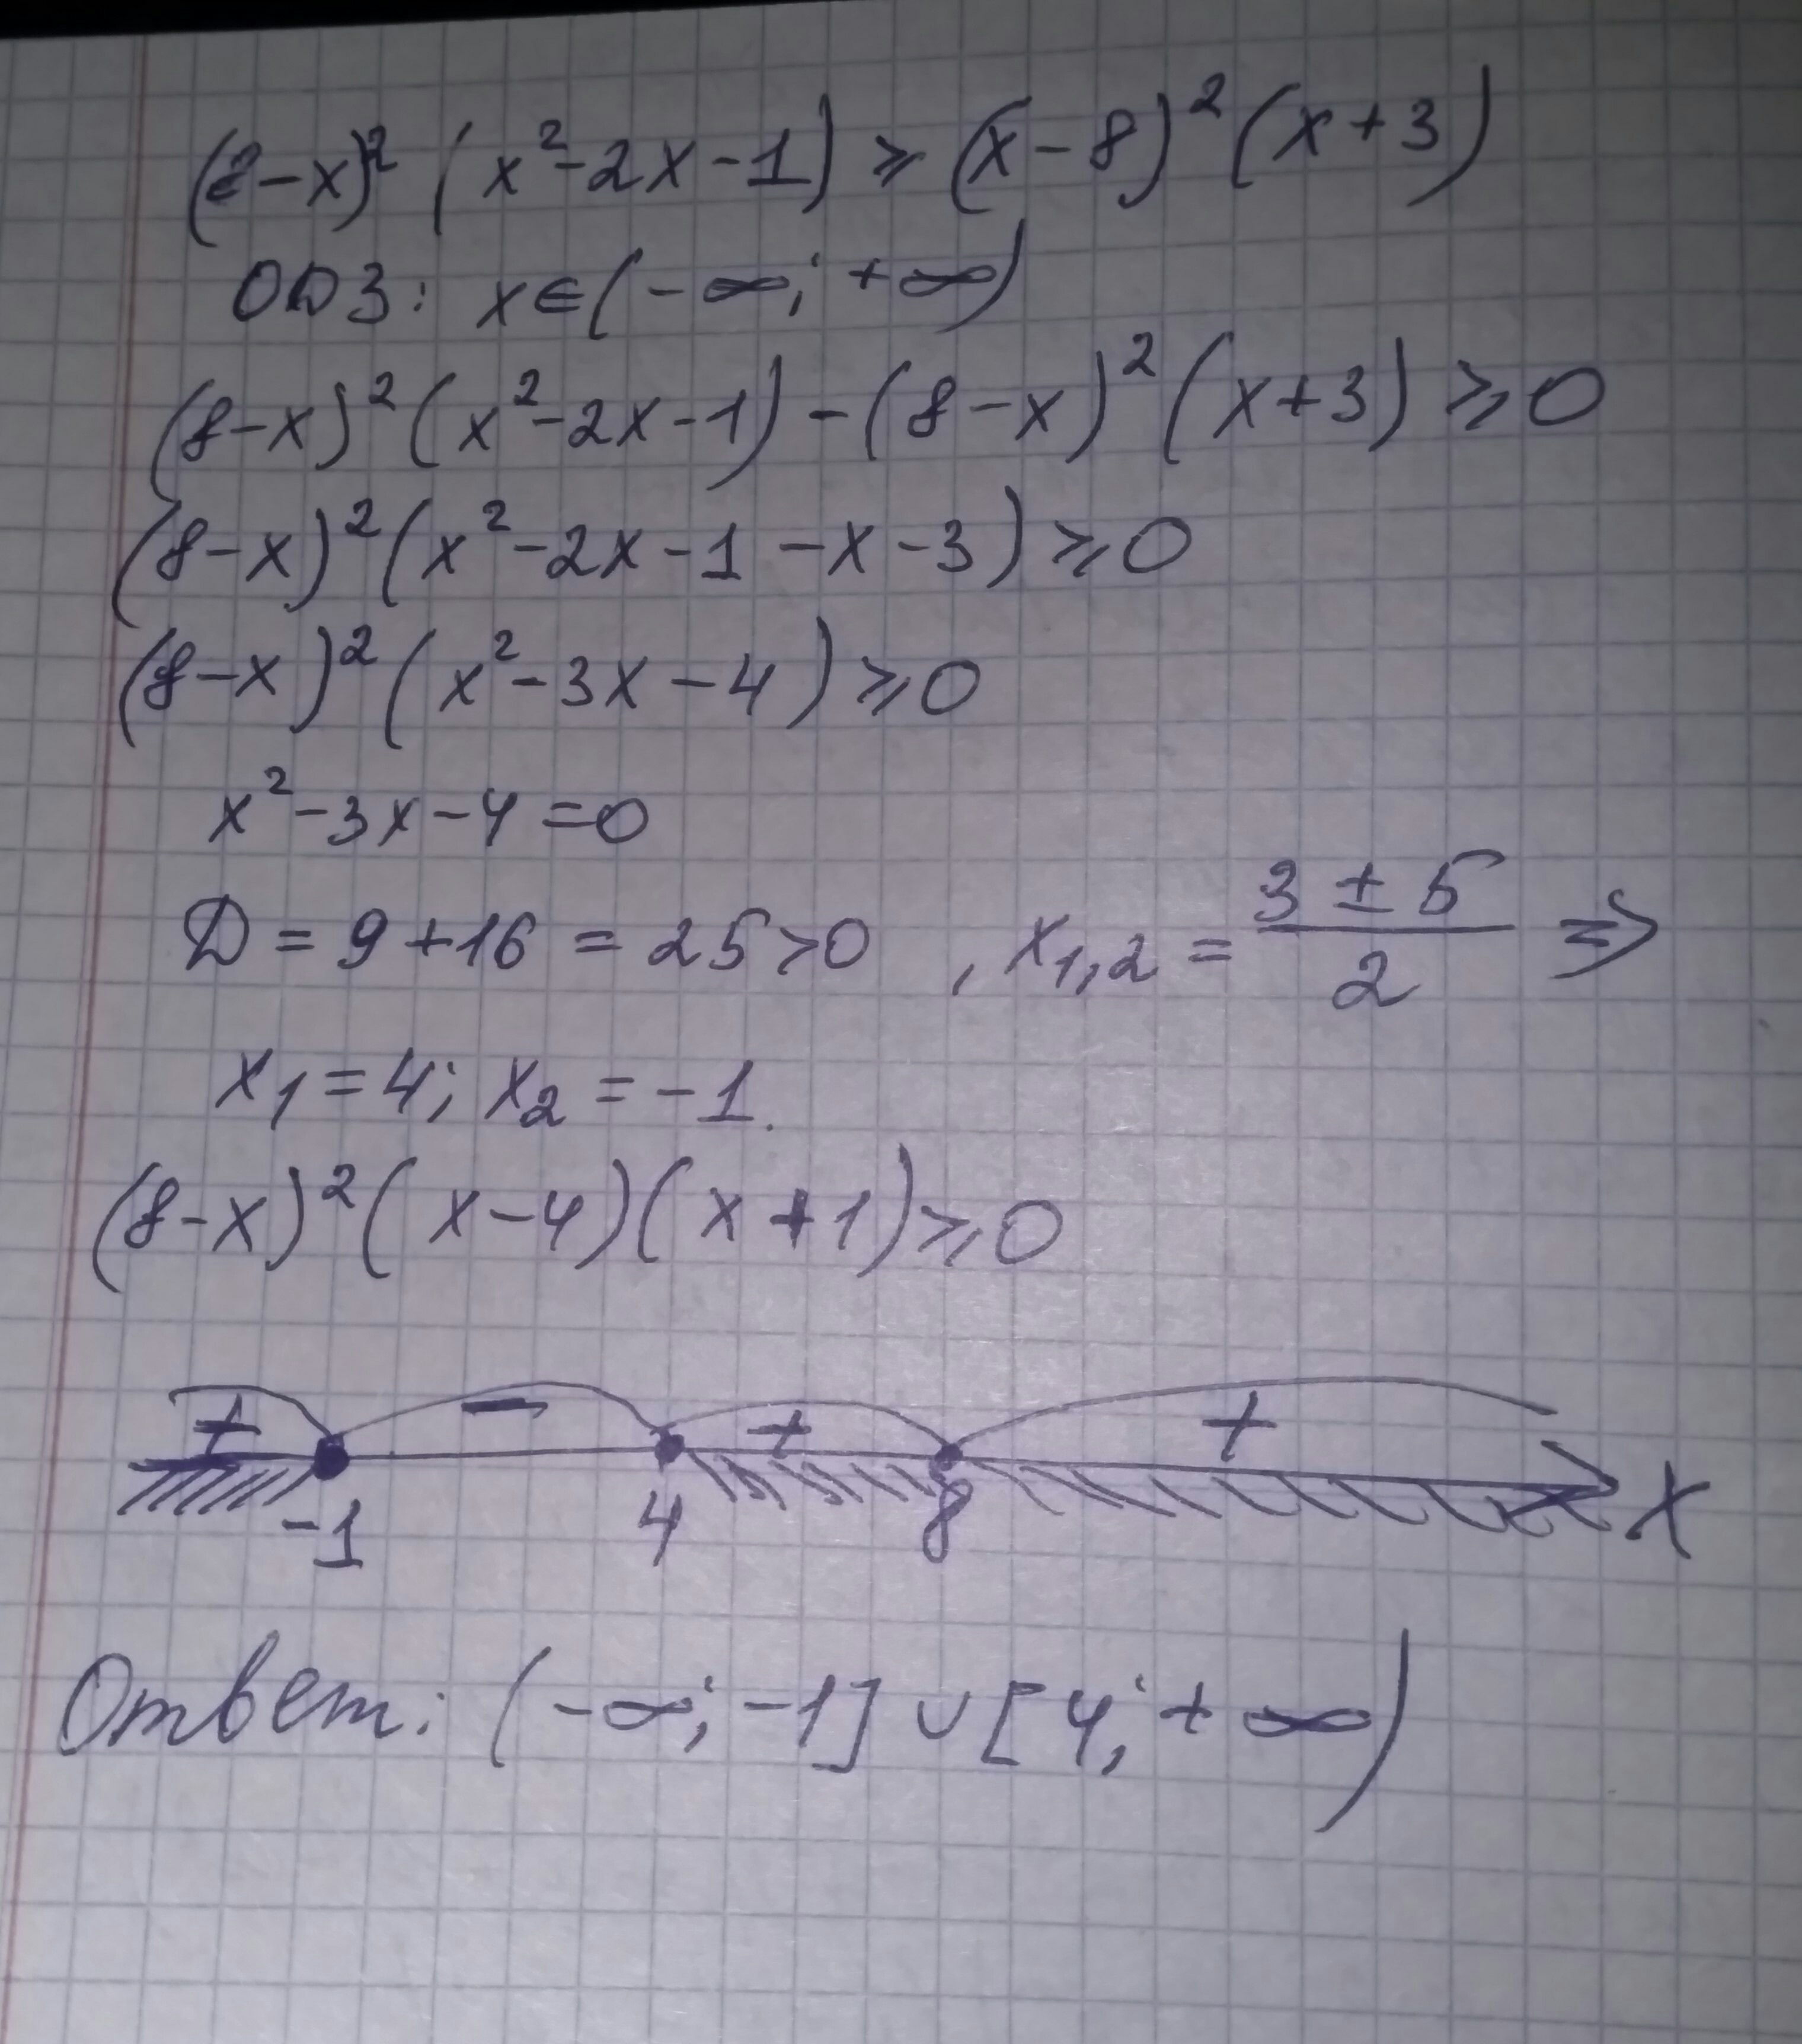 (8-x)² (x²-2x-1) ⩾ (x-8)² (x+3)
ОДЗ: x∈(-∞; +∞)
(8-x)² (x²-2x-1) - (8-x)² (x+3) ⩾ 0
(8-x)² (x²-2x-1-x-3) ⩾ 0
(8-x)² (x²-3x-4) ⩾ 0
x²-3x-4=0
Д = 9+16 = 25>0 , x₁,₂ = (3 ± 5)/2 ⇒
x₁=4; x₂ = -1.
(8-x)² (x-4)(x+1) ⩾ 0
+ - + +
-1 4 8 x
Ответ: (-∞; -1] ∪ [4; +∞)